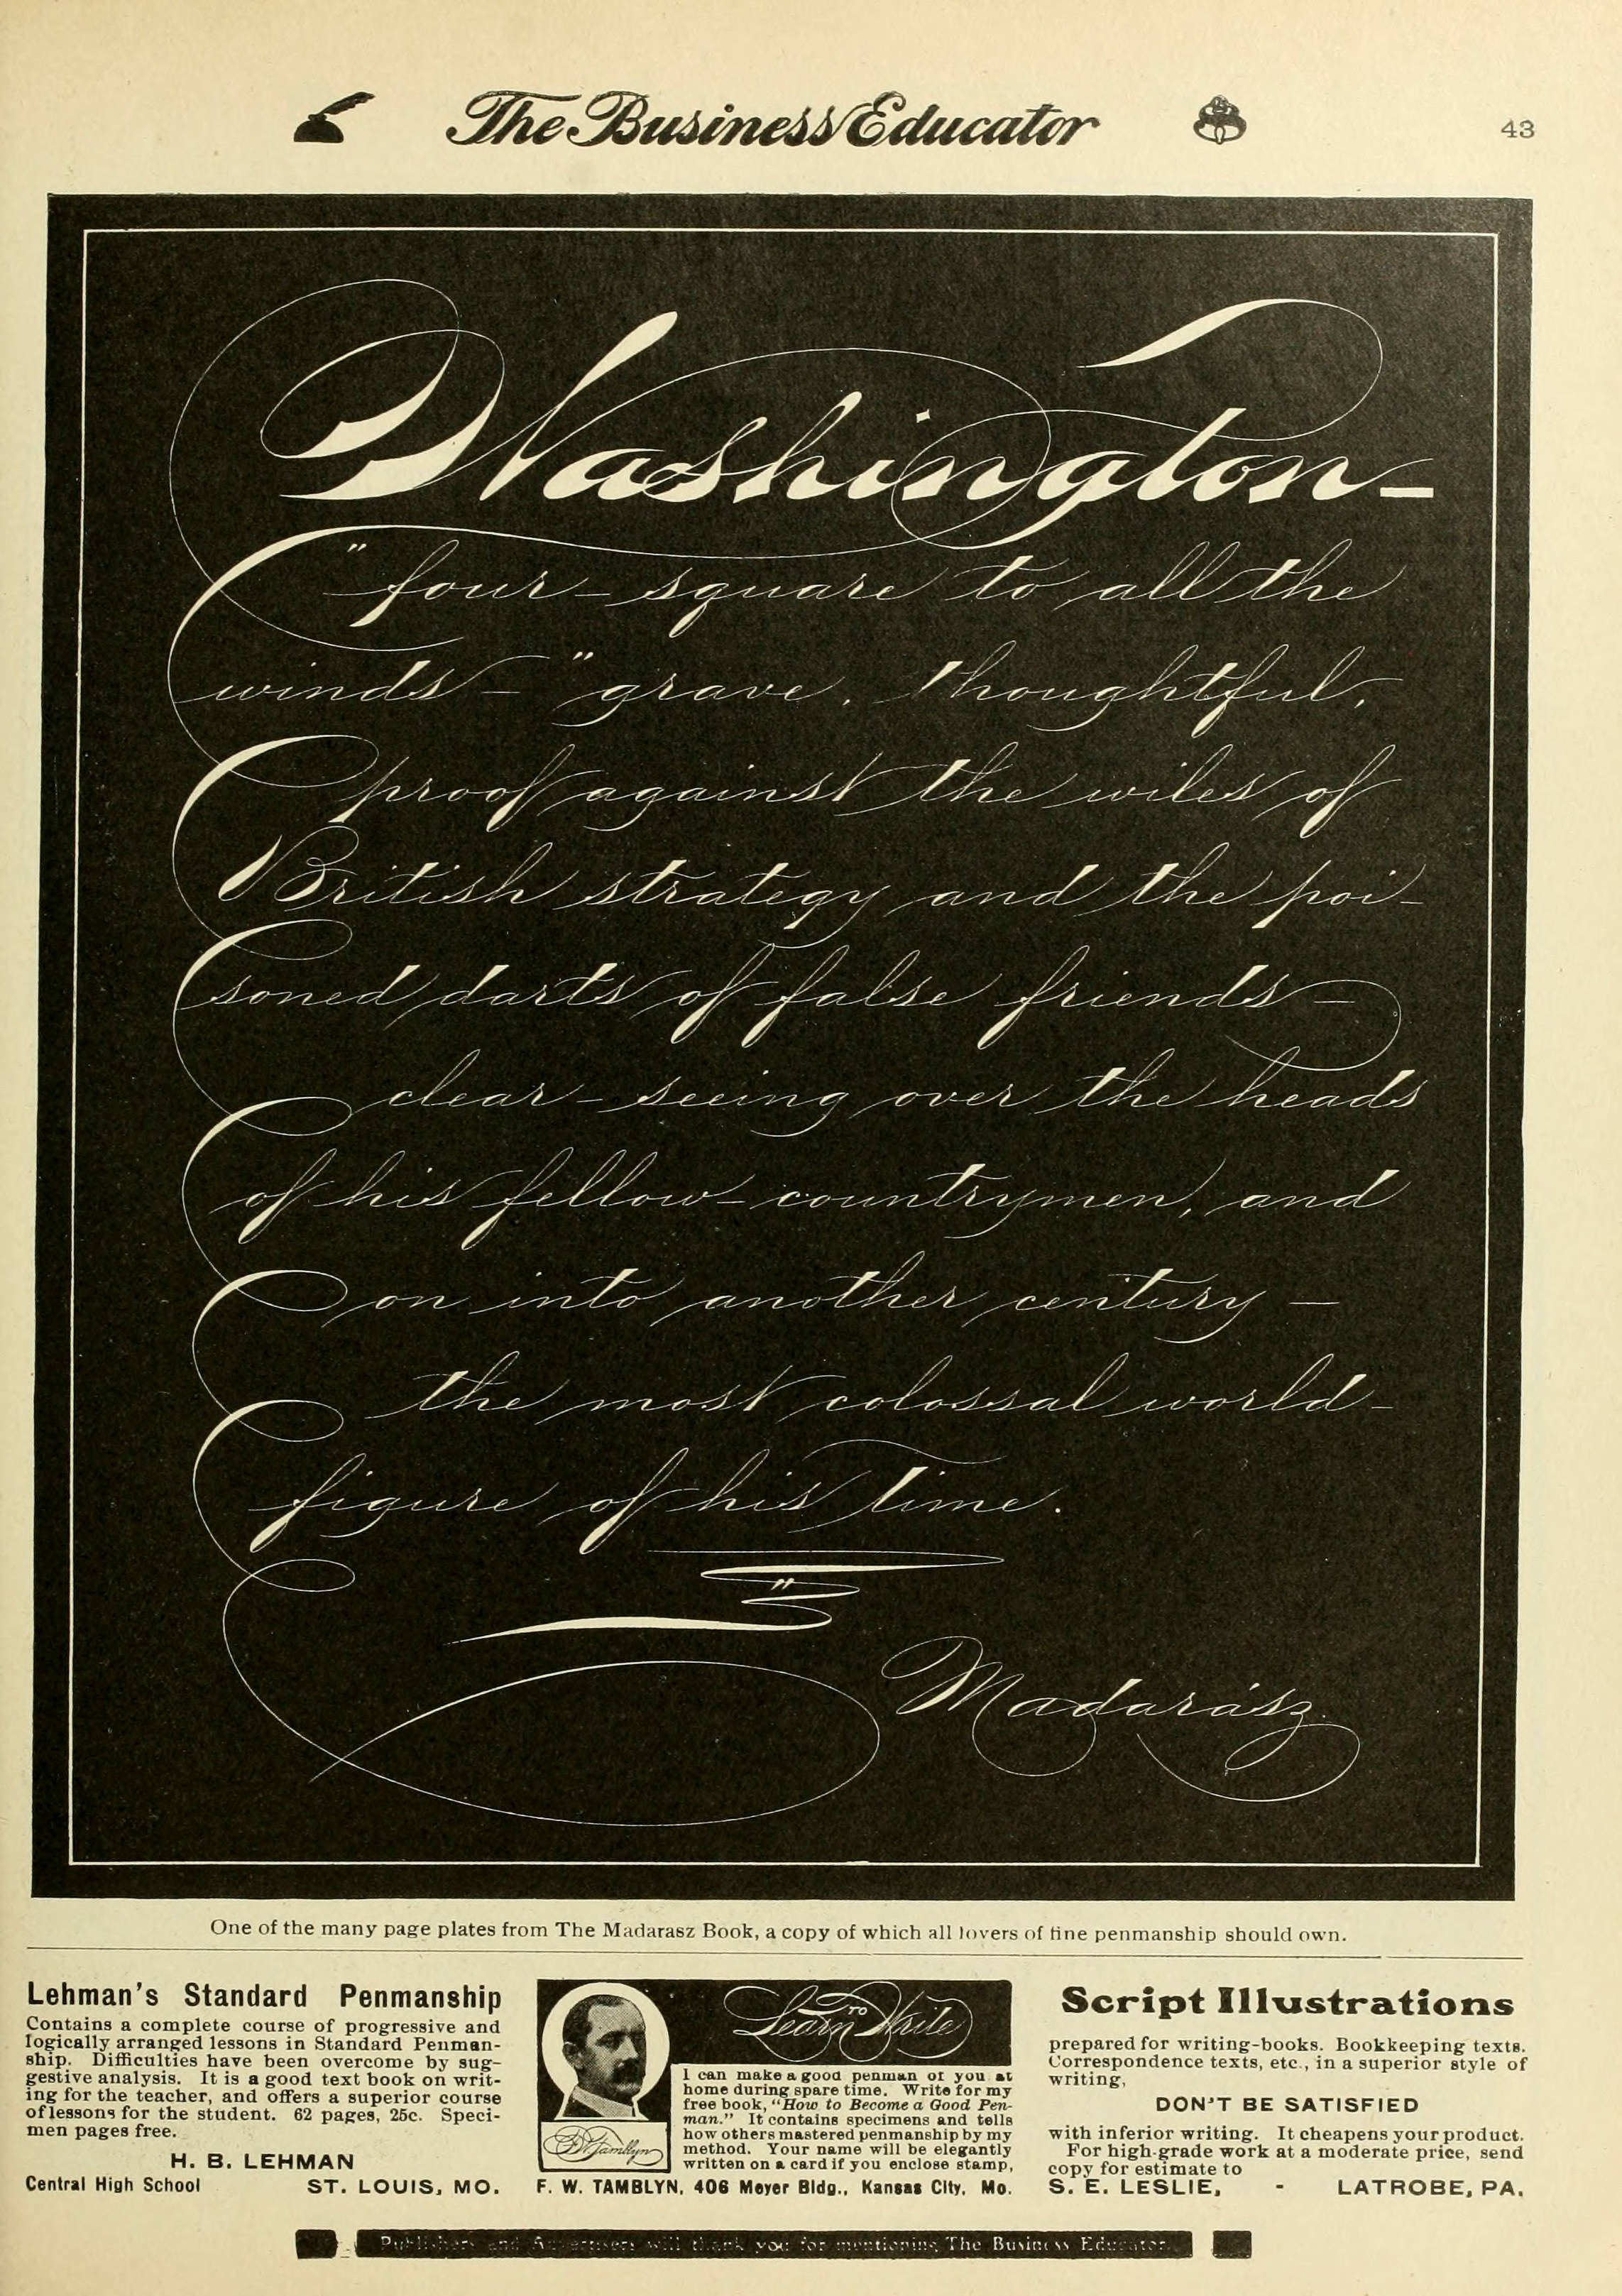 The Business Educator
43
Washington—
"four-square to all the
winds—" grave, thoughtful,
proof against the wiles of
British strategy and the poi-
soned darts of false friends—
clear-seeing over the heads
of his fellow-countrymen, and
on into another century—
the most colossal world-
figure of his time.
"
Madarász
One of the many page plates from The Madarasz Book, a copy of which all lovers of fine penmanship should own.
Lehman's Standard Penmanship
Contains a complete course of progressive and
logically arranged lessons in Standard Penman-
ship. Difficulties have been overcome by sug-
gestive analysis. It is a good text book on writ-
ing for the teacher, and offers a superior course
of lessons for the student. 62 pages, 25c. Speci-
men pages free.
H. B. LEHMAN
Central High School ST. LOUIS, MO.
Learn TO Write
I can make a good penman of you at
home during spare time. Write for my
free book, "How to Become a Good Pen-
man." It contains specimens and tells
how others mastered penmanship by my
method. Your name will be elegantly
written on a card if you enclose stamp,
F. W. Tamblyn
F. W. TAMBLYN, 406 Meyer Bldg., Kansas City, Mo.
Script Illustrations
prepared for writing-books. Bookkeeping texts.
Correspondence texts, etc., in a superior style of
writing,
DON'T BE SATISFIED
with inferior writing. It cheapens your product.
For high-grade work at a moderate price, send
copy for estimate to
S. E. LESLIE, - LATROBE, PA.
Publishers and Advertisers will thank you for mentioning The Business Educator.